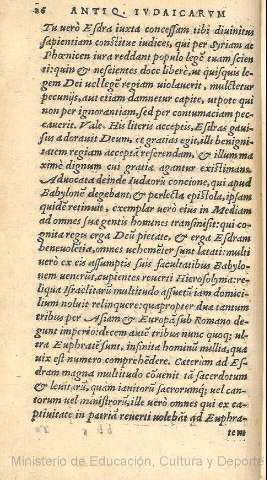 26 ANTIQ. IVDAICARVM
Tu verò Esdra iuxta concessam tibi diuinitus
sapientiam constitue iudices, qui per Syriam ac
Phœnicem iura reddant populo legẽ tuam scien
ti: quin & nescientes doce liberè, ut quisquis le-
gem Dei uel legẽ regiam uiolauerit, mulctetur
pecunijs, aut etiam damnetur capite, utpote qui
non per ignorantiam, sed per contumaciam pec-
cauerit. Vale. His literis acceptis, Esdras gaui-
sus adorauit Deum, et gratias egit, illi benigni-
tatem regiam acceptã referendam, & illum ma
ximè dignum cui gratiæ agantur existimans.
Aduocata deinde Iudæorũ concione, qui apud
Babylonẽ degebant, & perlecta epistola, ipsam
quidẽ retinuit, exemplar verò eius in Mediam
ad omnes suæ gentis homines transmisit: qui co-
gnita regis erga Deũ pietate, & erga Esdram
beneuolẽtia, omnes uehemẽter sunt lætati: multi
verò ex eis assumptis suis facultatibus Babylo-
nem uenerũt, cupientes reuerti Hierosolyma: re-
liqua Israëlitarũ multitudo assuetũ iam domici-
lium noluit relinquere: quapropter duæ tantum
tribus per Asiam & Europã sub Romano de-
gunt imperio: decem autẽ tribus nunc quoq; ul-
tra Euphratẽ sunt, infinita hominũ millia, quæ
uix est numero comprehẽdere. Cæterùm ad Es-
dram magna multitudo cõuenit tã sacerdotum
& leuitarũ, quàm ianitorũ sacrorumq; uel can-
torum uel ministrorũ, ille verò omnes qui ex ca-
ptiuitate in patriã reuerti uolebãt ad Euphra-
tem
Ministerio de Educación, Cultura y Deporte